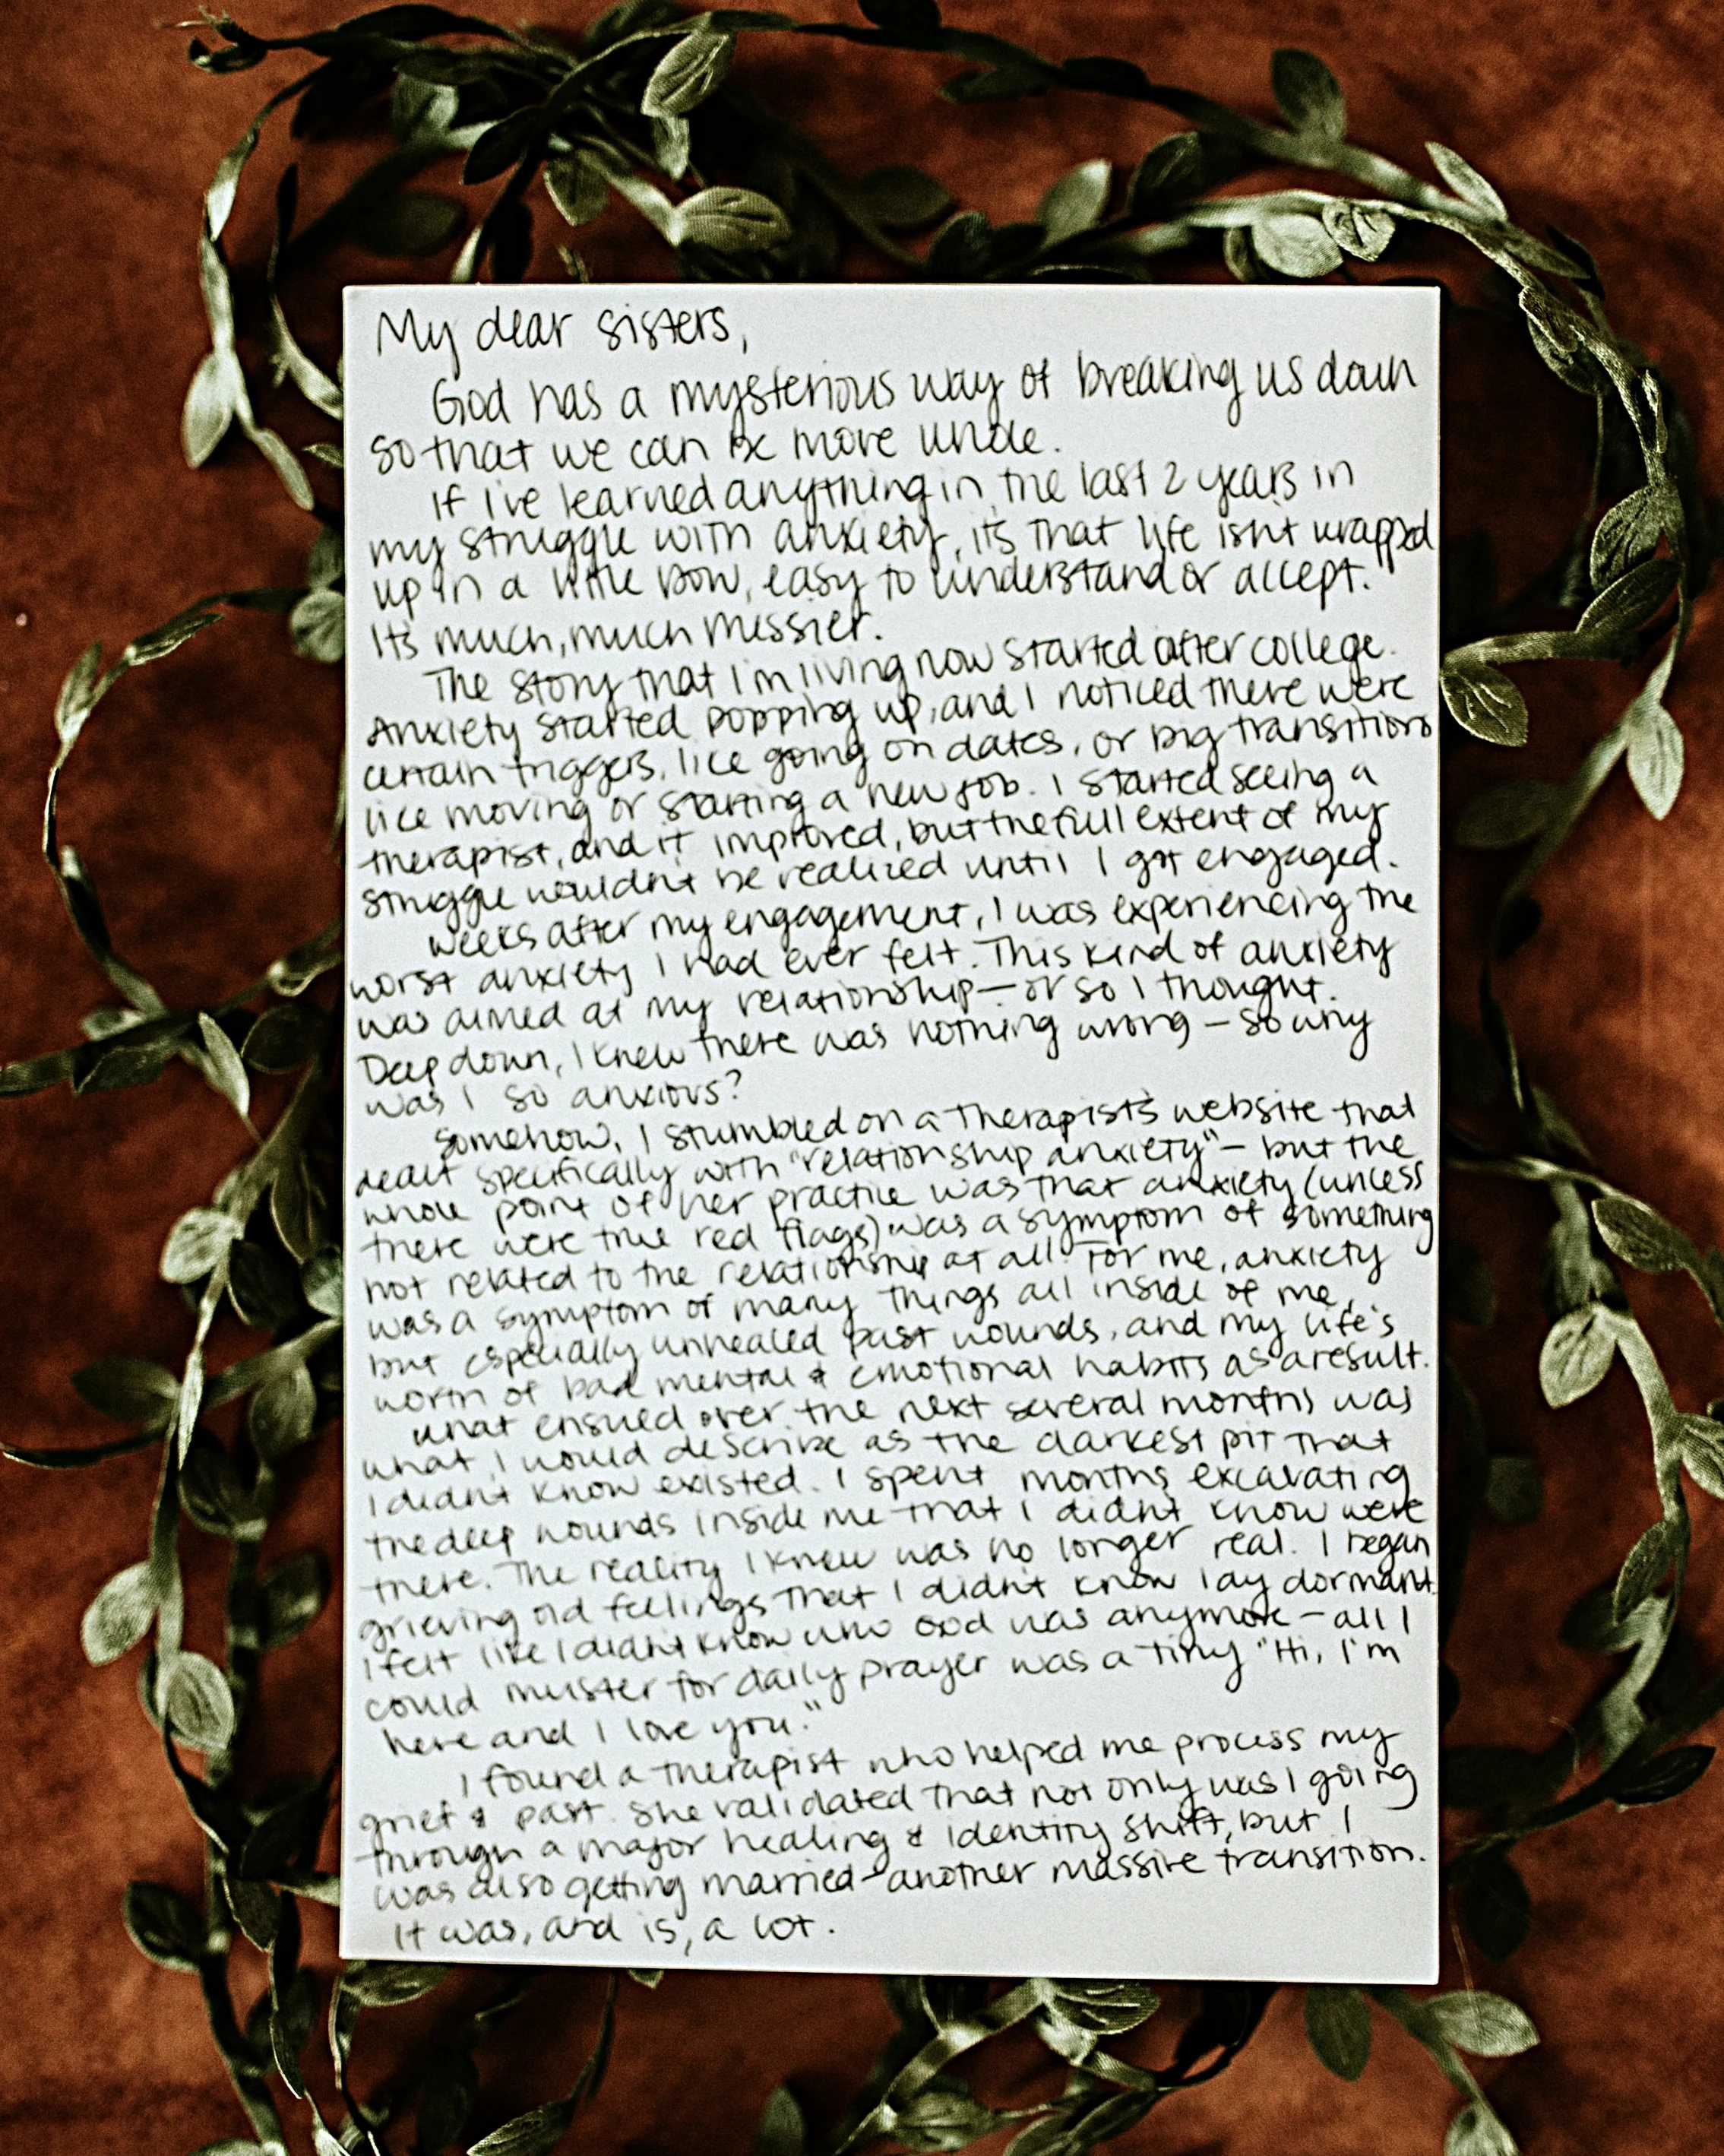 My dear sisters,
God has a mysterious way of breaking us down
so that we can be more whole.
If I've learned anything in the last 2 years in
my struggle with anxiety, it's that life isn't wrapped
up in a little bow, easy to understand or accept.
It's much, much messier.
The story that I'm living now started after college.
Anxiety started popping up, and I noticed there were
certain triggers, like going on dates, or big transitions
like moving or starting a new job. I started seeing a
therapist, and it improved, but the full extent of my
struggle wouldn't be realized until I got engaged.
Weeks after my engagement, I was experiencing the
worst anxiety I had ever felt. This kind of anxiety
was aimed at my relationship - or so I thought.
Deep down, I knew there was nothing wrong - so why
was I so anxious?
Somehow, I stumbled on a therapist's website that
dealt specifically with "relationship anxiety" - but the
whole point of her practice was that anxiety (unless
there were true red flags) was a symptom of something
not related to the relationship at all. For me, anxiety
was a symptom of many things all inside of me,
but especially unhealed past wounds, and my life's
worth of bad mental & emotional habits as a result.
What ensued over the next several months was
what I would describe as the darkest pit that
I didn't know existed. I spent months excavating
the deep wounds inside me that I didn't know were
there. The reality I knew was no longer real. I began
grieving old feelings that I didn't know lay dormant.
I felt like I didn't know who God was anymore - all I
could muster for daily prayer was a tiny "Hi, I'm
here and I love you."
I found a therapist who helped me process my
grief & past. She validated that not only was I going
through a major healing & identity shift, but I
was also getting married - another massive transition.
It was, and is, a lot.